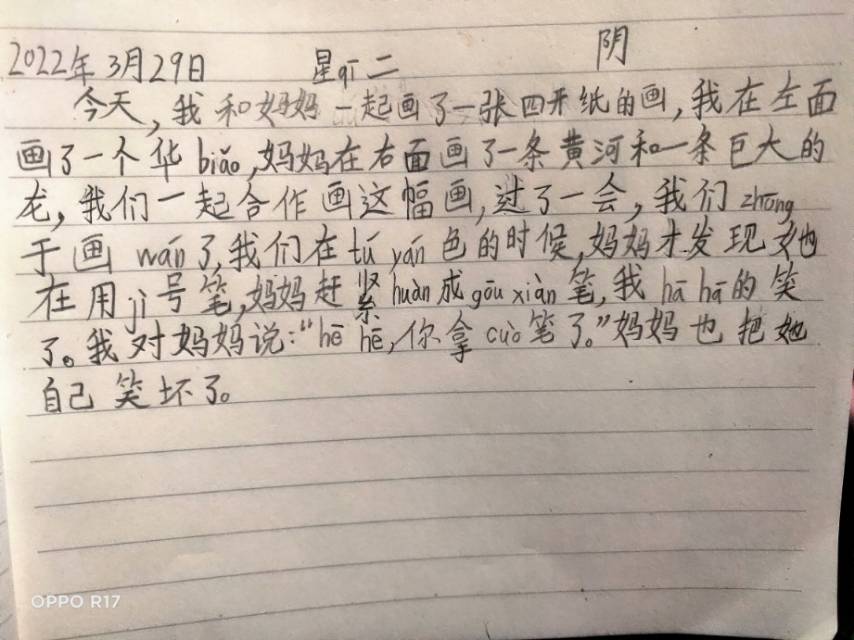 2022年3月29日 星qī二 阴
今天,我和妈妈一起画了一张四开纸的画,我在左面
画了一个华biǎo,妈妈在右面画了一条黄河和一条巨大的
龙,我们一起合作画这幅画,过了一会,我们zhōng
于画wán了,我们在tú yán色的时候,妈妈才发现她
在用jì号笔,妈妈赶紧huàn成gōu xiàn笔,我hā hā的笑
了。我对妈妈说:“hē hē,你拿cuò笔了。”妈妈也把她
自己笑坏了。
OPPO R17